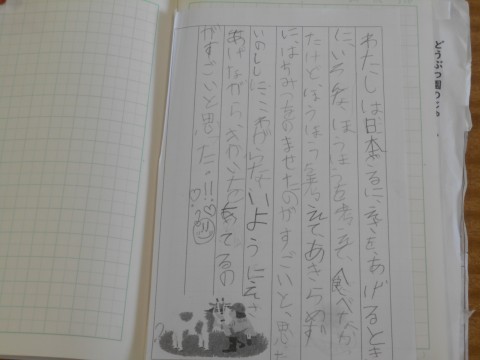 わたしは日本ざるにえさをあげるとき
にいろんなほうほうを考えて、食べなか
たけどほうほうを考えてあきらめず
に、はちみつをのませたのがすごいと、思った
いのししにこわがらないようにえさ
あげながら、きかいをあてるの
がすごいと思った。!!
どうぶつ園の